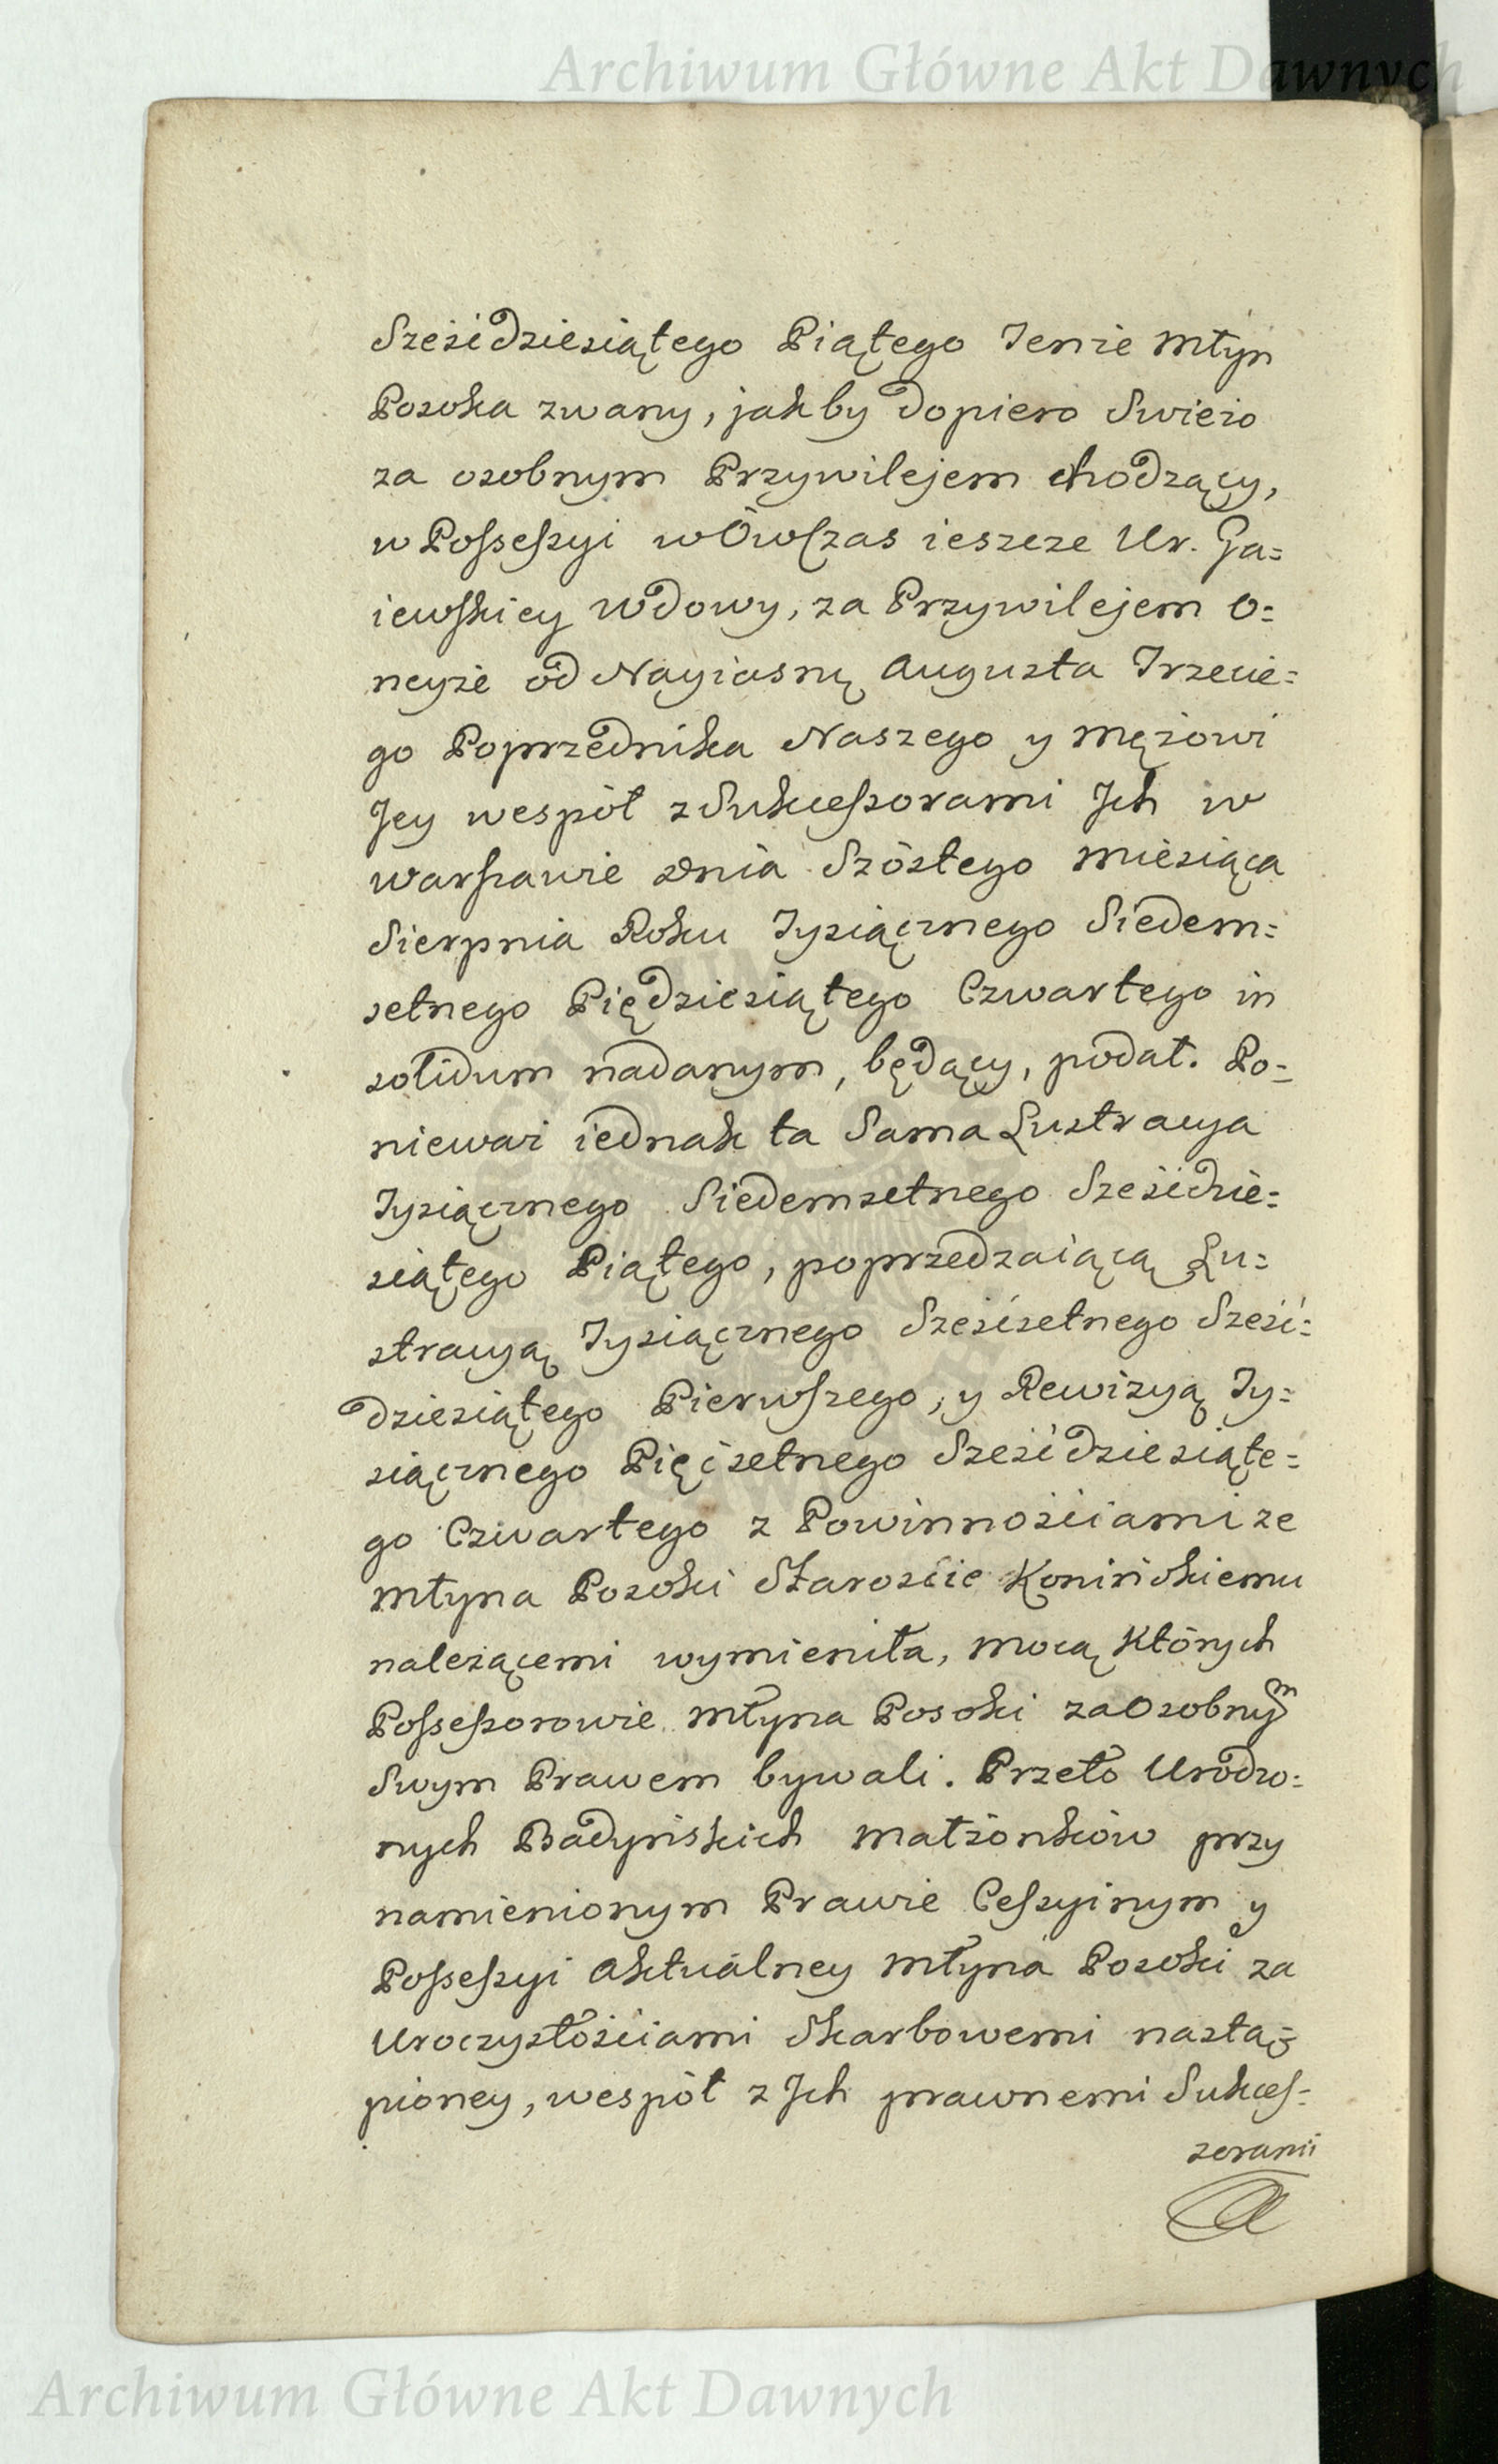 Archiwum Główne Akt Dawnych
Sześćdziesiątego Piątego Tenże Młyn
Posoka zwany, jakby dopiero Swieżo
za osobnym Przywilejem chodzący,
w Possessyi wÔwczas ieszcze Ur. Ga=
iewskiey Wdowy, za Przywilejem o=
neyże od Nayiasnę Augusta Trzecie=
go Poprzednika Naszego y Mężowi
Jey wespół z Sukcessorami Jch w
Warszawie dnia Szóstego Miesiąca
Sierpnia Roku Tysiącznego Siedem=
setnego Piędziesiątego Czwartego in
solidum nadanym, będący, podał. Po=
nieważ iednak ta Sama Lustracya
Tysiącznego Siedemsetnego Sześćdzie=
siątego Piątego, poprzedzaiącą Lu=
stracyą Tysiącznego Sześćsetnego Sześć=
dziesiątego Pierwszego, y Rewizyą Ty=
siącznego Pięćsetnego Sześćdziesiąte=
go Czwartego z Powinnościami ze
Młyna Posoki Staroście Konińskiemu
należącemi wymieniła, mocą Których
Possessorowie Młyna Posoki za Osobnym
Swym Prawem bywali. Przeto Urodzo=
nych Badyńskich Małżonków przy
namienionym Prawie Cessyinym y
Possessyi Aktualney Młyna Posoki za
Uroczystościami Skarbowemi nastą=
pioney, wespół z Jch prawnemi Sukces=
sorami
Archiwum Główne Akt Dawnych